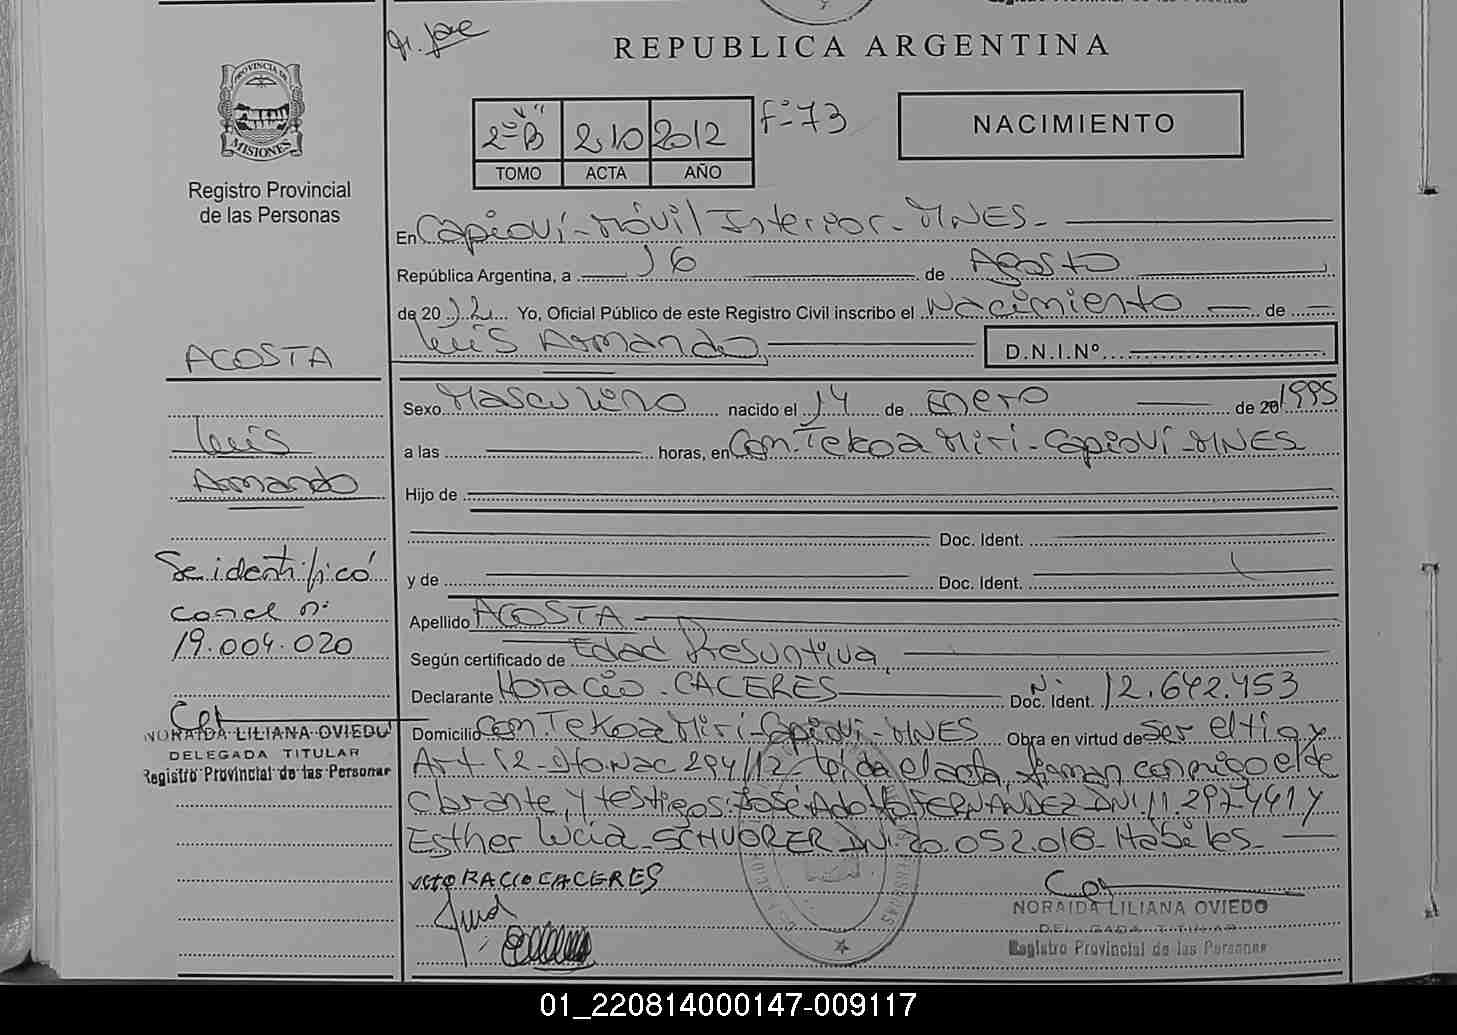 REPUBLICA ARGENTINA
PROVINCIA DE
MISIONES
Registro Provincial
de las Personas
2º "B" 210 2012 Fº 73
TOMO ACTA AÑO
NACIMIENTO
En Capioví - Móvil Interior - MNES -
República Argentina, a 16 de Agosto
de 2012 Yo, Oficial Público de este Registro Civil inscribo el Nacimiento de
Luis Armando D.N.I.Nº
ACOSTA
Luis
Armando
Se identificó
con el nº
19.004.020
NORAIDA LILIANA OVIEDO
DELEGADA TITULAR
Registro Provincial de las Personas
Sexo Masculino nacido el 14 de Enero de 20 1995
a las horas, en Com. Tekoa Miri - Capioví - MNES
Hijo de
Doc. Ident.
y de Doc. Ident.
Apellido ACOSTA
Según certificado de Edad Presuntiva
Declarante Horacio CACERES Doc. Ident. Nº 12.642.453
Domicilio Com Tekoa Miri - Capioví - MNES Obra en virtud de ser el tio y
Art 12 - Dto Nac 294/12 - Leida el acta, firman conmigo el de
clarante, y testigos: José Adolfo FERNANDEZ DNI. 11.297.441 y
Esther Lucia SCHVORER DNI. 20.052.018 - Habiles -
HORACIO CACERES
NORAIDA LILIANA OVIEDO
DELEGADA TITULAR
Registro Provincial de las Personas
01_220814000147-009117